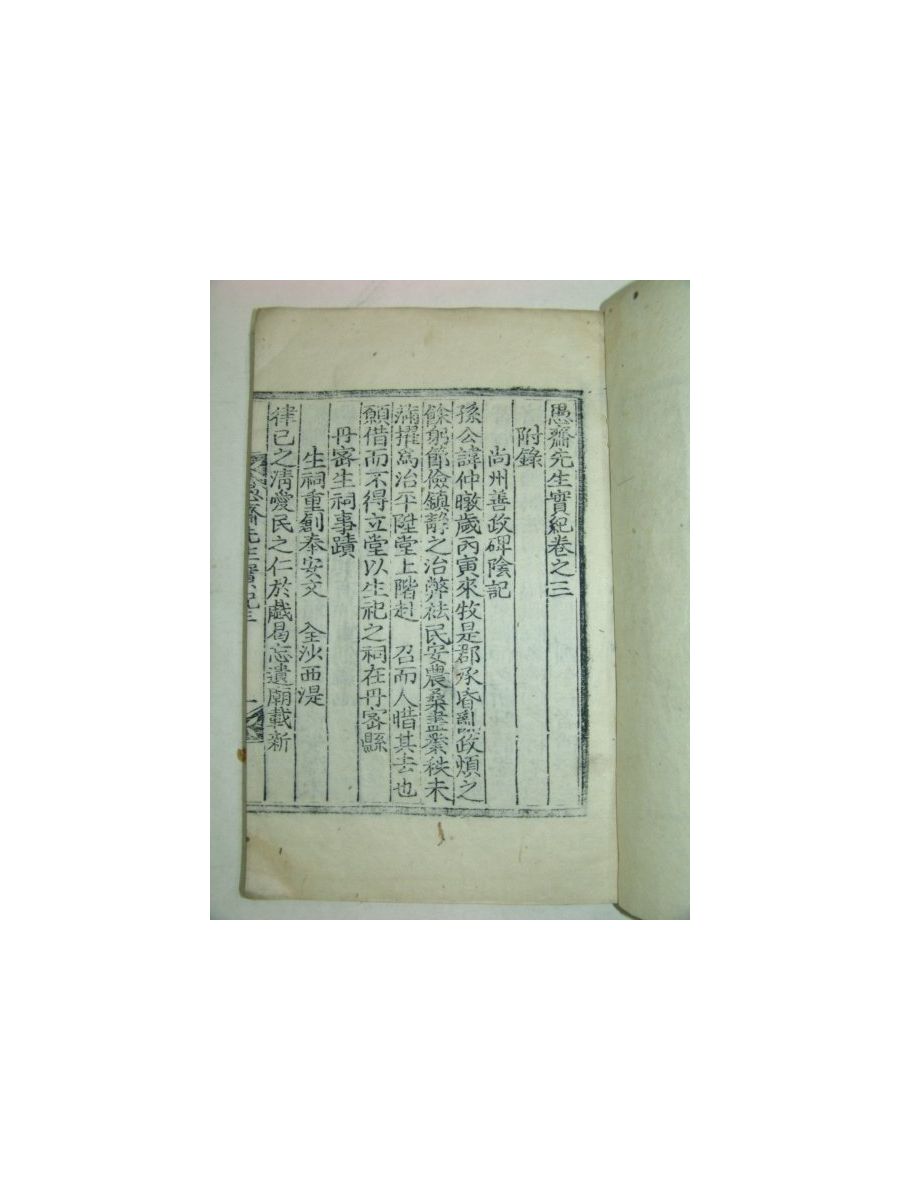 愚齋先生實紀卷之三
附錄
尚州善政碑陰記
孫公諱仲暾歲丙寅來牧是郡承昏亂政煩之
餘躬節儉鎮靜之治弊祛民安農桑盡業秩未
滿擢爲治平陞堂上階赴 召而人惜其去也
願借而不得立堂以生祀之祠在丹密縣
丹密生祠事蹟
生祠重創奉安文 全沙西湜
律己之淸愛民之仁於戱曷忘遺廟載新
愚齋先生實紀三 一